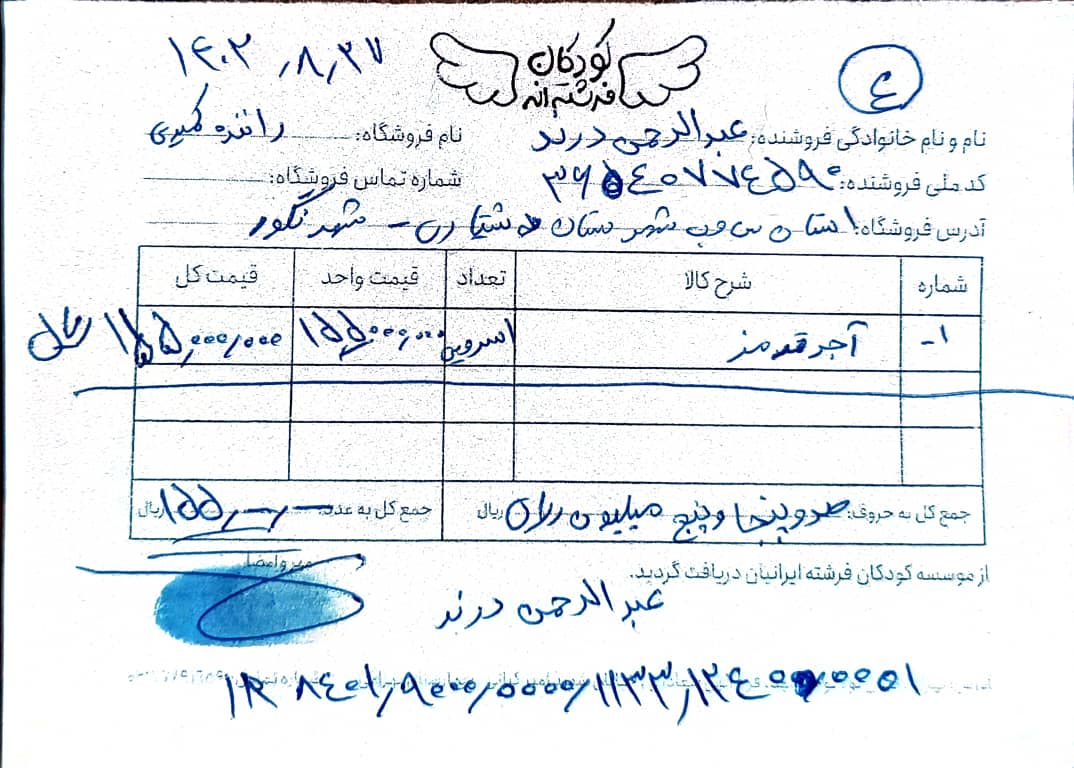 ۱۴۰۲/۸/۲۷
کودکان
فرشته‌اند
۴
نام و نام خانوادگی فروشنده: عبدالرحمن درزند نام فروشگاه: راننده کمپرسی
کد ملی فروشنده: شماره تماس فروشگاه:
آدرس فروشگاه: استان س و ب شهرستان دشتیاری - شهر نگور
شماره شرح کالا تعداد قیمت واحد قیمت کل
۱- آجر قرمز ۱سرویس ۱۵۵،۰۰۰،۰۰۰ ۱۵۵،۰۰۰،۰۰۰ ریال
جمع کل به حروف: صد و پنجاه و پنج میلیون ریال ریال جمع کل به عدد: ۱۵۵ ریال
مهر و امضا
از موسسه کودکان فرشته ایرانیان دریافت گردید.
عبدالرحمن درزند